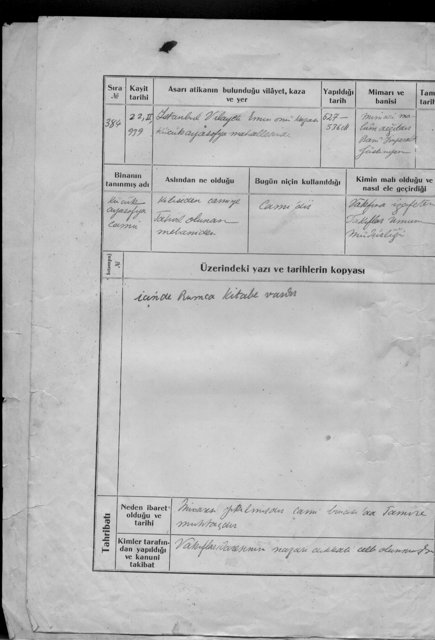 Sıra
№
Kayit
tarihi
Asarı atikanın bulunduğu vilâyet, kaza
ve yer
Yapıldığı
tarih
Mimarı ve
banisi
Tam
tarih
384
22, II
939
İstanbul Vilayeti Emin önü kazası
Küçükayasofya mahallesinde
527-
536 dı
Mimarı ma
lüm değildir
Bani İmparat
Jüstinyen
Binanın
tanınmış adı
Aslından ne olduğu
Bugün niçin kullanıldığı
Kimin malı olduğu ve
nasıl ele geçirdiği
Küçük
ayasofya
Camii
Kiliseden camiye
tahvil olunan
mebaniden
Camidir
Vakfına izafeten
Vakıflar Umum
Müdürlüğü
№
Üzerindeki yazı ve tarihlerin kopyası
içinde Rumca Kitabe vardır
Tahribatı
Neden ibaret
olduğu ve
tarihi
Minaresi yıkılmıştır cami binası da Tamire
muhtaçdır
Kimler tarafın-
dan yapıldığı
ve kanuni
takibat
Vakıflar İdaresinin nazarı dikkati celb olunmuşdu